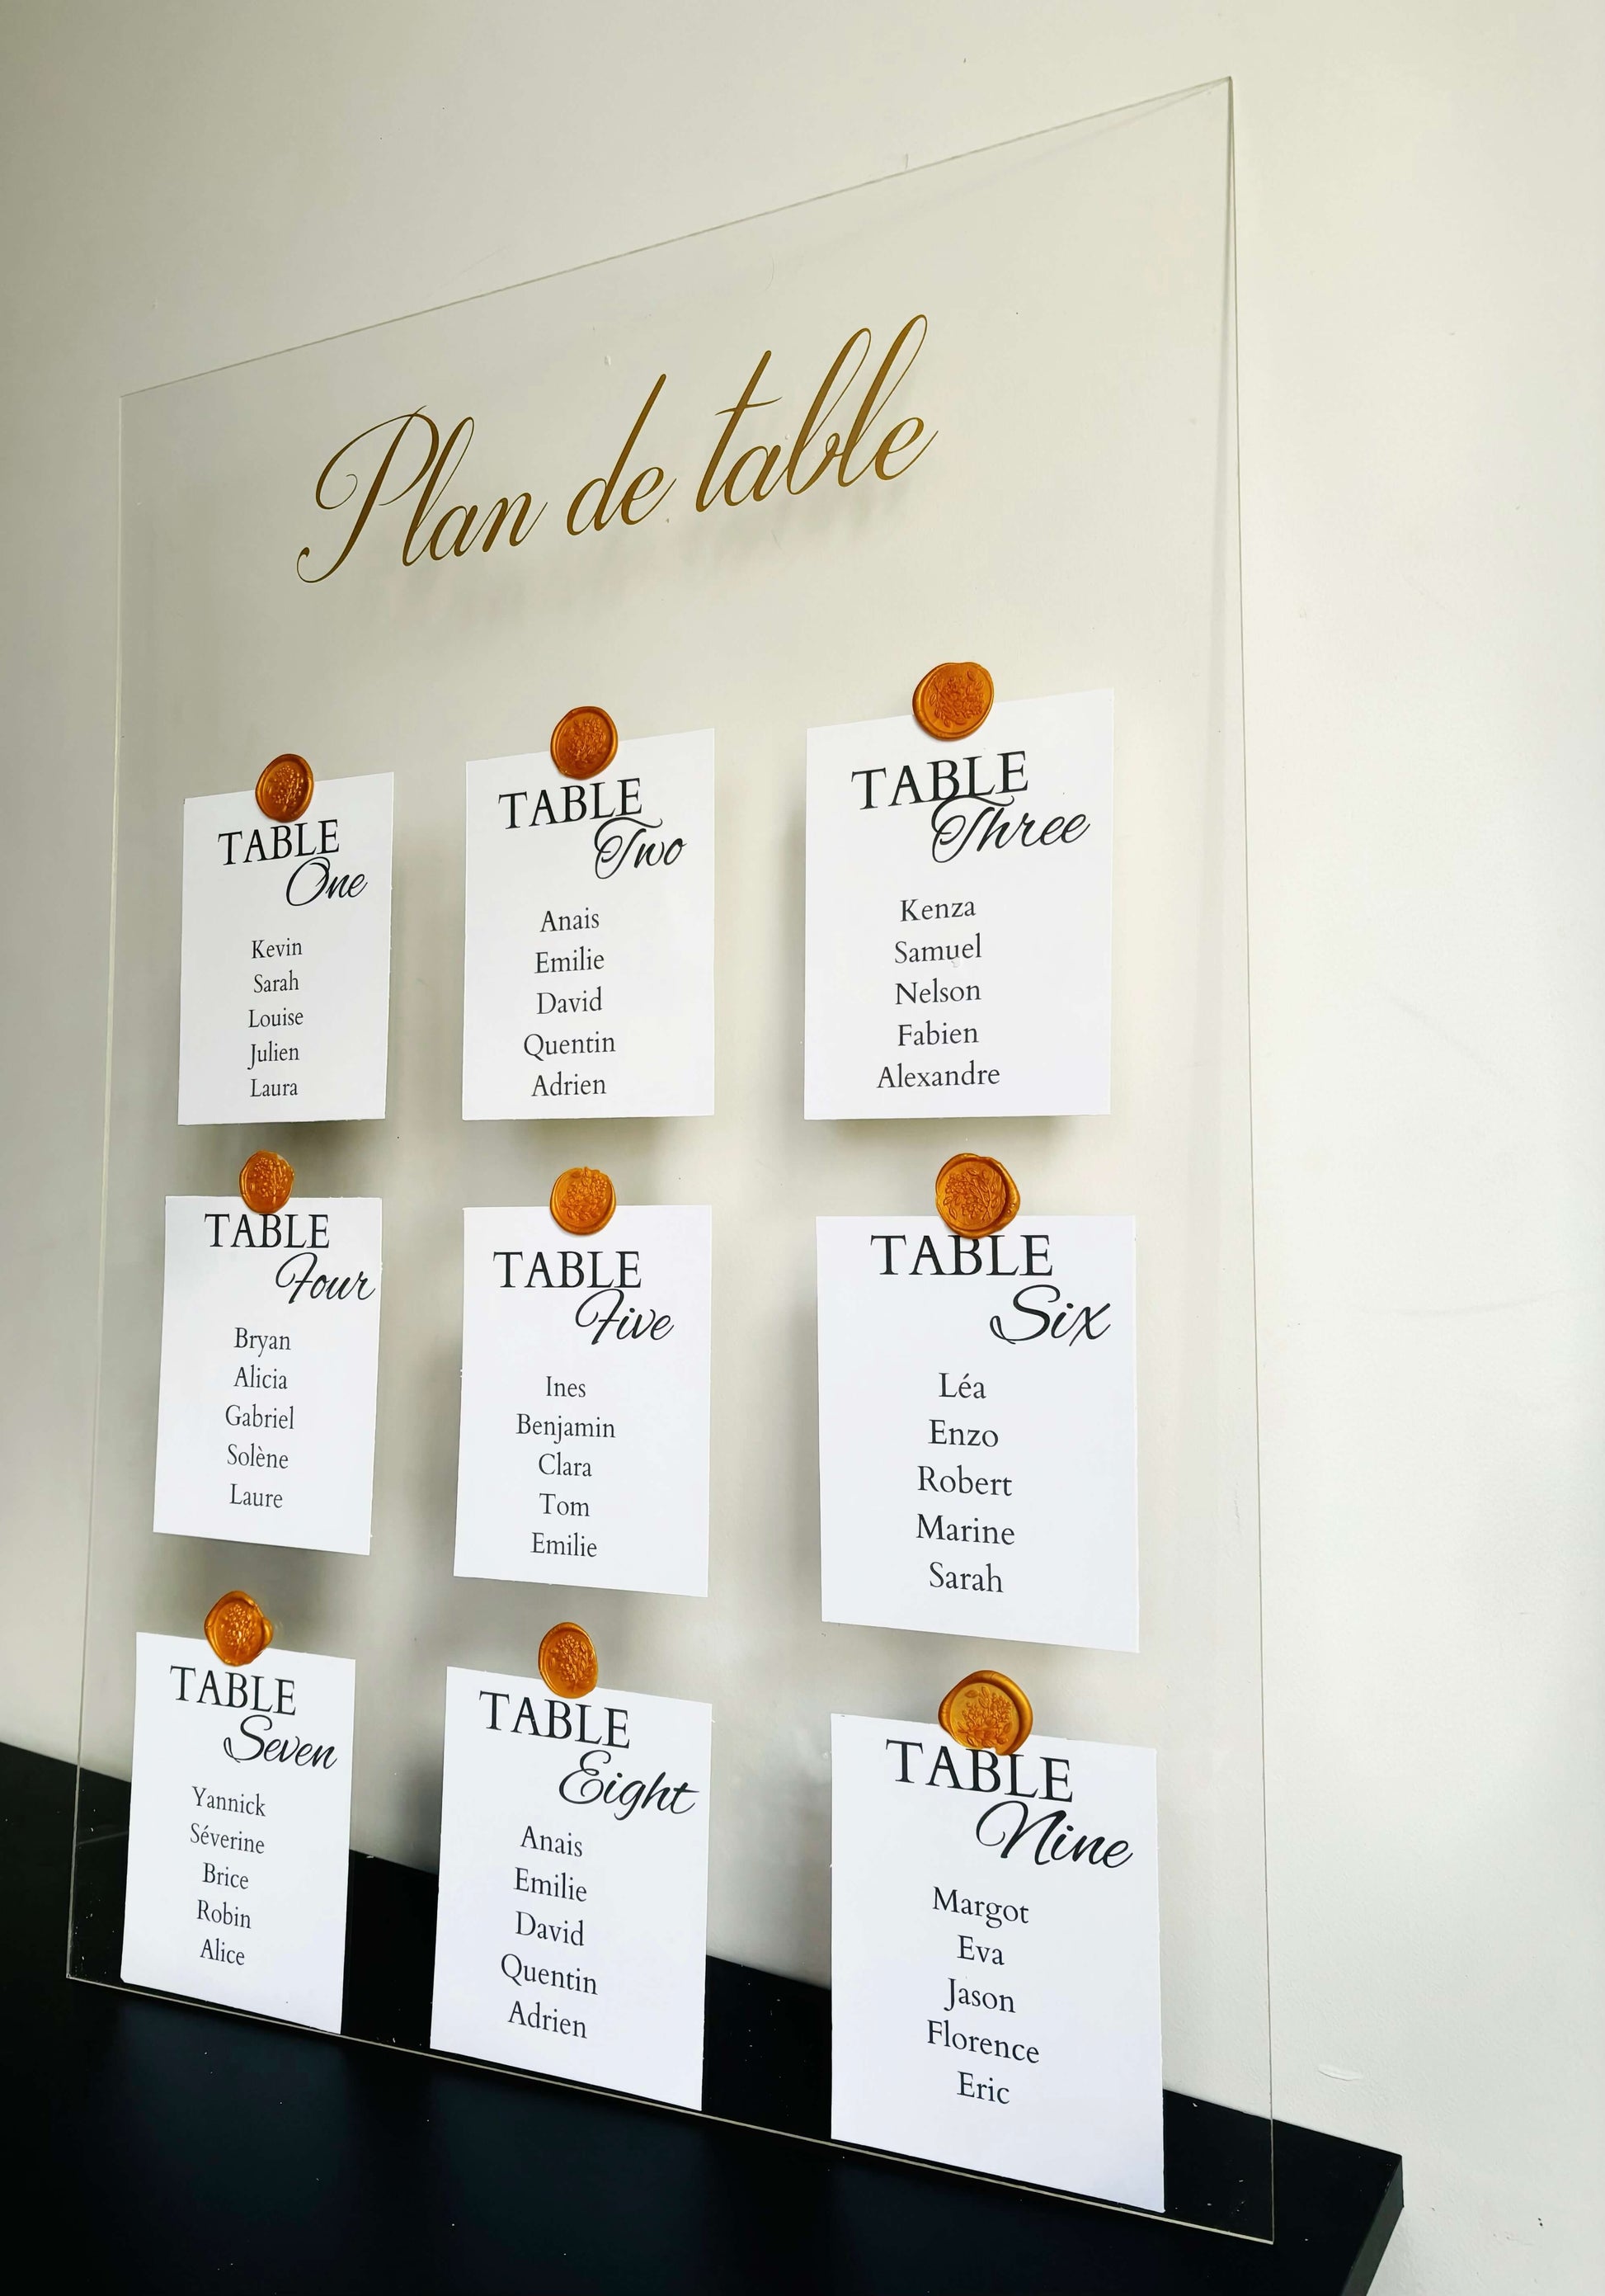 Plan de table
TABLE
One
Kevin
Sarah
Louise
Julien
Laura
TABLE
Two
Anais
Emilie
David
Quentin
Adrien
TABLE
Three
Kenza
Samuel
Nelson
Fabien
Alexandre
TABLE
Four
Bryan
Alicia
Gabriel
Solène
Laure
TABLE
Five
Ines
Benjamin
Clara
Tom
Emilie
TABLE
Six
Léa
Enzo
Robert
Marine
Sarah
TABLE
Seven
Yannick
Séverine
Brice
Robin
Alice
TABLE
Eight
Anais
Emilie
David
Quentin
Adrien
TABLE
Nine
Margot
Eva
Jason
Florence
Eric